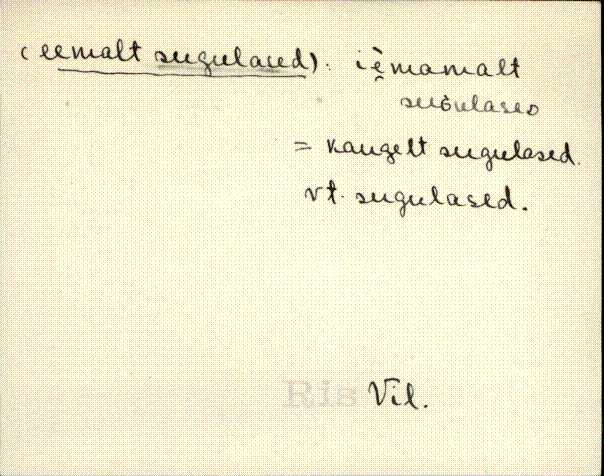 (eemalt sugulased): iẹ̀mamalt
suɢulaseᴅ
= kaugelt sugulased.
vt. sugulased.
Ris Vil.